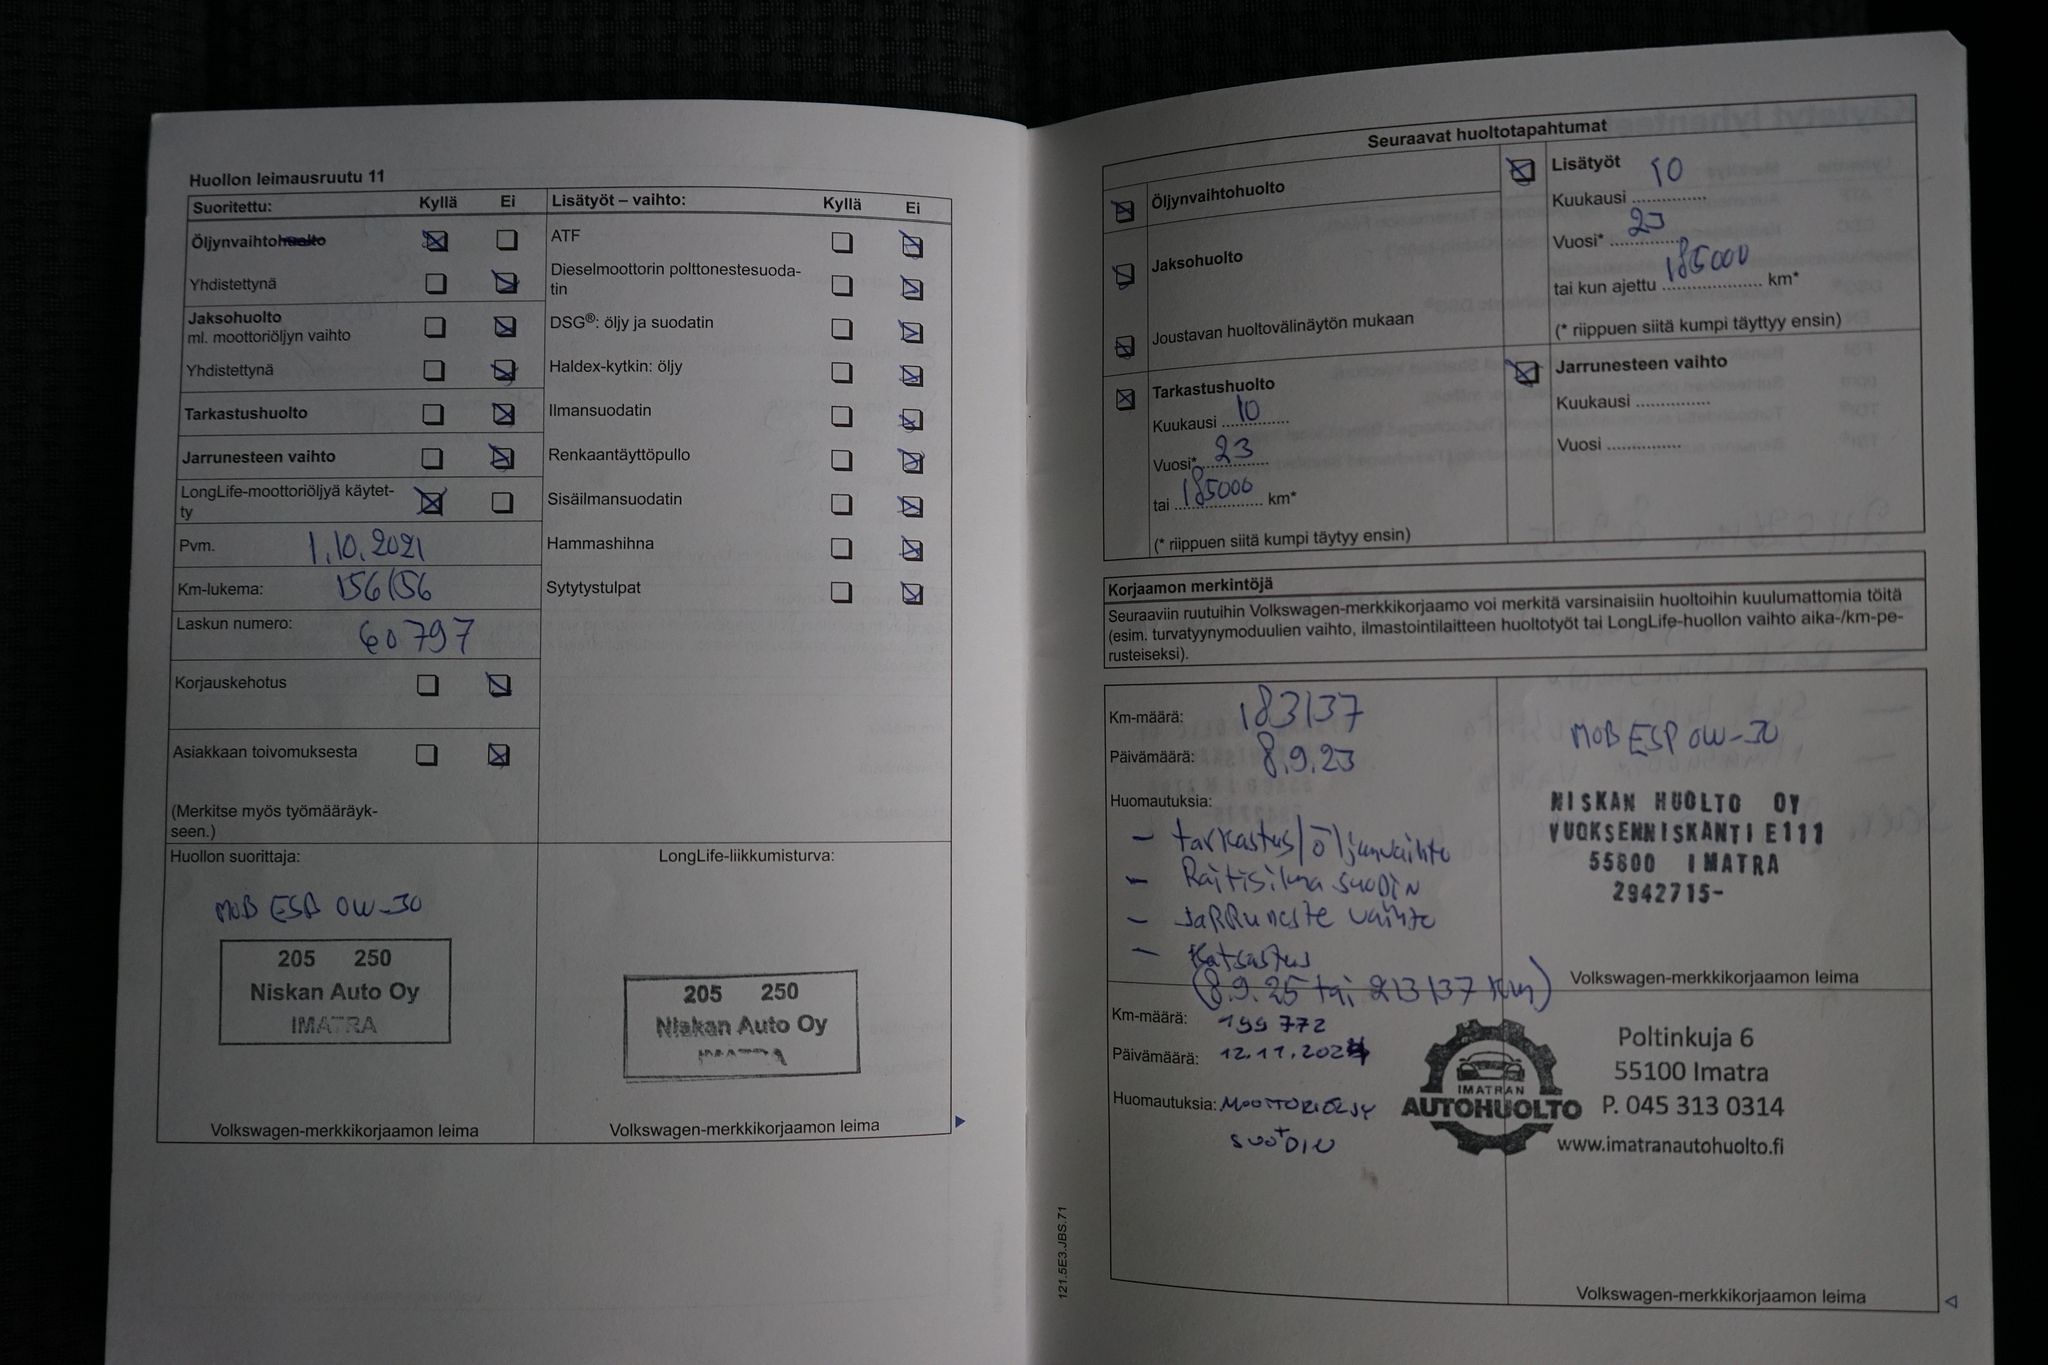 Huollon leimausruutu 11
Suoritettu: Kyllä Ei
Öljynvaihtohuolto
Yhdistettynä
Jaksohuolto
ml. moottoriöljyn vaihto
Yhdistettynä
Tarkastushuolto
Jarrunesteen vaihto
LongLife-moottoriöljyä käytet-
ty
Pvm. 1.10.2021
Km-lukema: 156156
Laskun numero: 60797
Korjauskehotus
Asiakkaan toivomuksesta
(Merkitse myös työmääräyk-
seen.)
Lisätyöt – vaihto: Kyllä Ei
ATF
Dieselmoottorin polttonestesuoda-
tin
DSG®: öljy ja suodatin
Haldex-kytkin: öljy
Ilmansuodatin
Renkaantäyttöpullo
Sisäilmansuodatin
Hammashihna
Sytytystulpat
Huollon suorittaja:
MOB ESP 0W-30
205 250
Niskan Auto Oy
IMATRA
Volkswagen-merkkikorjaamon leima
LongLife-liikkumisturva:
205 250
Niskan Auto Oy
IMATRA
Volkswagen-merkkikorjaamon leima
Seuraavat huoltotapahtumat
Öljynvaihtohuolto
Jaksohuolto
Joustavan huoltovälinäytön mukaan
Tarkastushuolto
Kuukausi 10
Vuosi* 23
tai 185000 km*
(* riippuen siitä kumpi täytyy ensin)
Lisätyöt
Kuukausi 10
Vuosi* 23
tai kun ajettu 185000 km*
(* riippuen siitä kumpi täyttyy ensin)
Jarrunesteen vaihto
Kuukausi ..............
Vuosi ..............
Korjaamon merkintöjä
Seuraaviin ruutuihin Volkswagen-merkkikorjaamo voi merkitä varsinaisiin huoltoihin kuulumattomia töitä
(esim. turvatyynymoduulien vaihto, ilmastointilaitteen huoltotyöt tai LongLife-huollon vaihto aika-/km-pe-
rusteiseksi).
Km-määrä: 183137
Päivämäärä: 8.9.23
Huomautuksia:
- tarkastus/öljynvaihto
- Raitisilma suodin
- Jarruneste vaihto
- Katsastus
(8.9.25 tai 213137 Km)
MOB ESP 0W-30
NISKAN HUOLTO OY
VUOKSENNISKANTIE111
55800 IMATRA
2942715-
Volkswagen-merkkikorjaamon leima
Km-määrä: 199 772
Päivämäärä: 12.11.2024
Huomautuksia: MOOTTORIÖLJY
+
SUODIN
IMATRAN
AUTOHUOLTO
Poltinkuja 6
55100 Imatra
P. 045 313 0314
www.imatranautohuolto.fi
Volkswagen-merkkikorjaamon leima
121.5E3.JBS.71